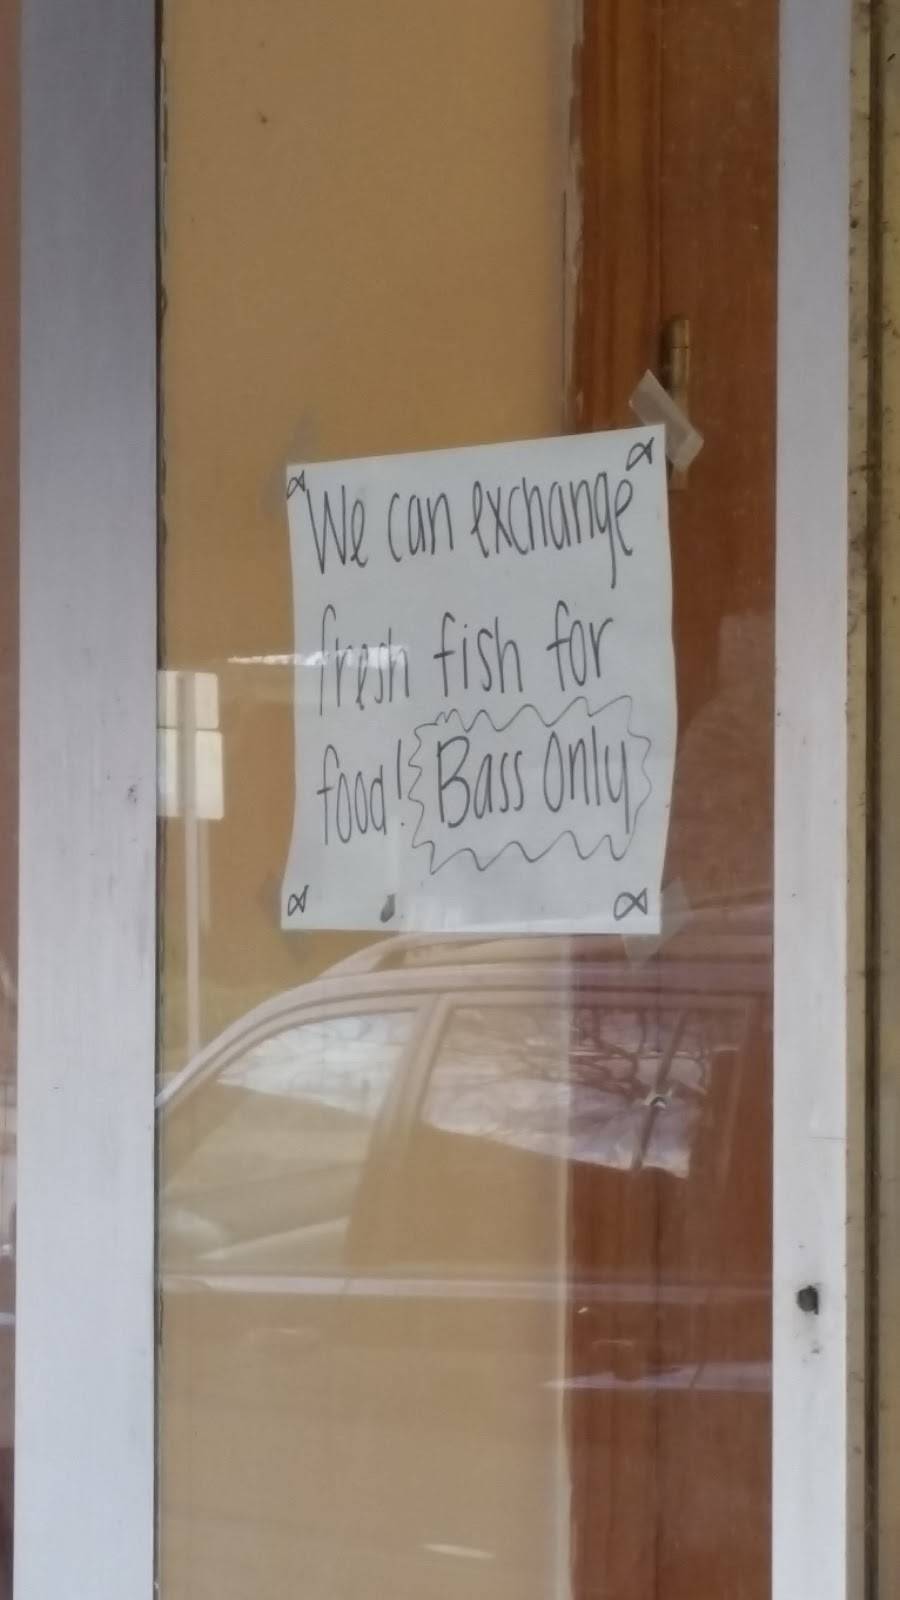 We can exchange
fresh fish for
food! Bass Only